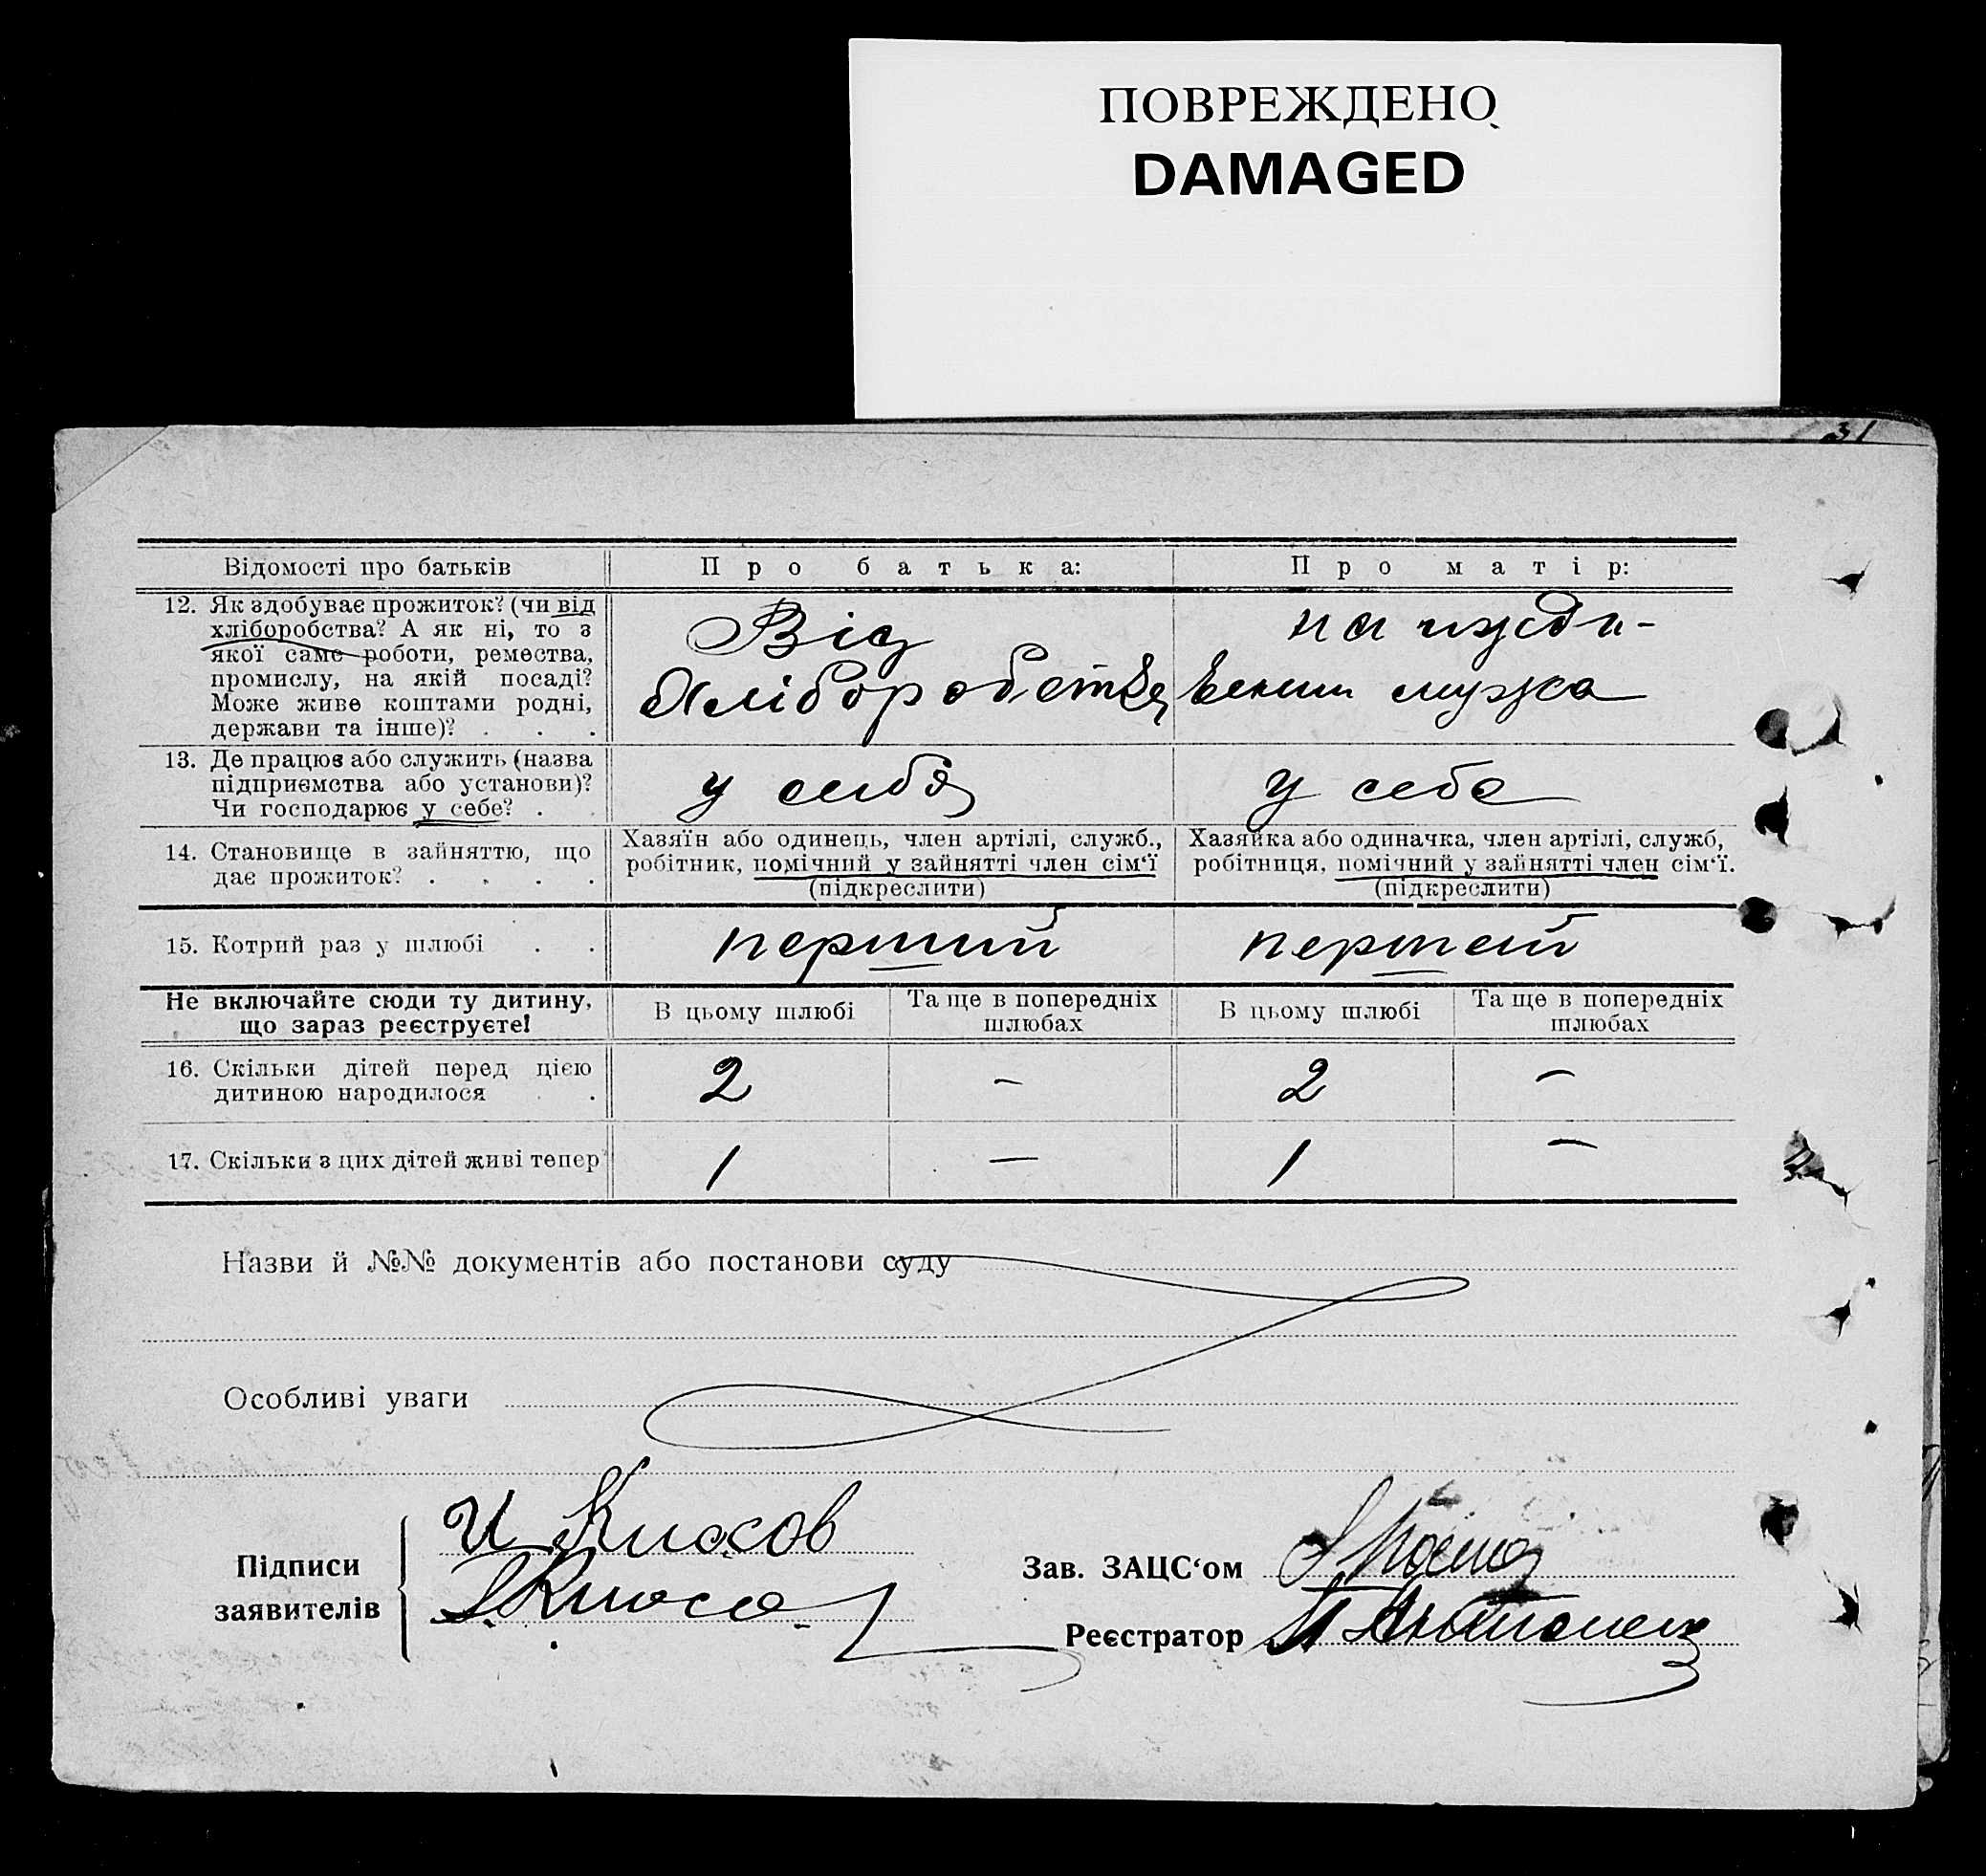 ПОВРЕЖДЕНО
DAMAGED
31
Відомості про батьків
Про батька:
Про матір:
12. Як здобуває прожиток? (чи від
хліборобства? А як ні, то з
якої саме роботи, ремества,
промислу, на якій посаді?
Може живе коштами родні,
держави та інше)? . . .
Від
Хліборобства
на ижди-
вении мужа
13. Де працює або служить (назва
підприємства або установи)?
Чи господарює у себе? .
у себя
у себе
14. Становище в зайняттю, що
дає прожиток? . . . .
Хазяїн або одинець, член артілі, служб.,
робітник, помічний у зайнятті член сім‘ї
(підкреслити)
Хазяйка або одиначка, член артілі, служб,
робітниця, помічний у зайнятті член сім‘ї.
(підкреслити)
15. Котрий раз у шлюбі . .
перший
першей
Не включайте сюди ту дитину,
що зараз реєструєте!
В цьому шлюбі
Та ще в попередніх
шлюбах
В цьому шлюбі
Та ще в попередніх
шлюбах
16. Скільки дітей перед цією
дитиною народилося . .
2
—
2
—
17. Скільки з цих дітей живі тепер
1
—
1
—
Назви й №№ документів або постанови суду
Особливі уваги
Підписи
заявителів
И
Зав. ЗАЦС‘ом
Реєстратор